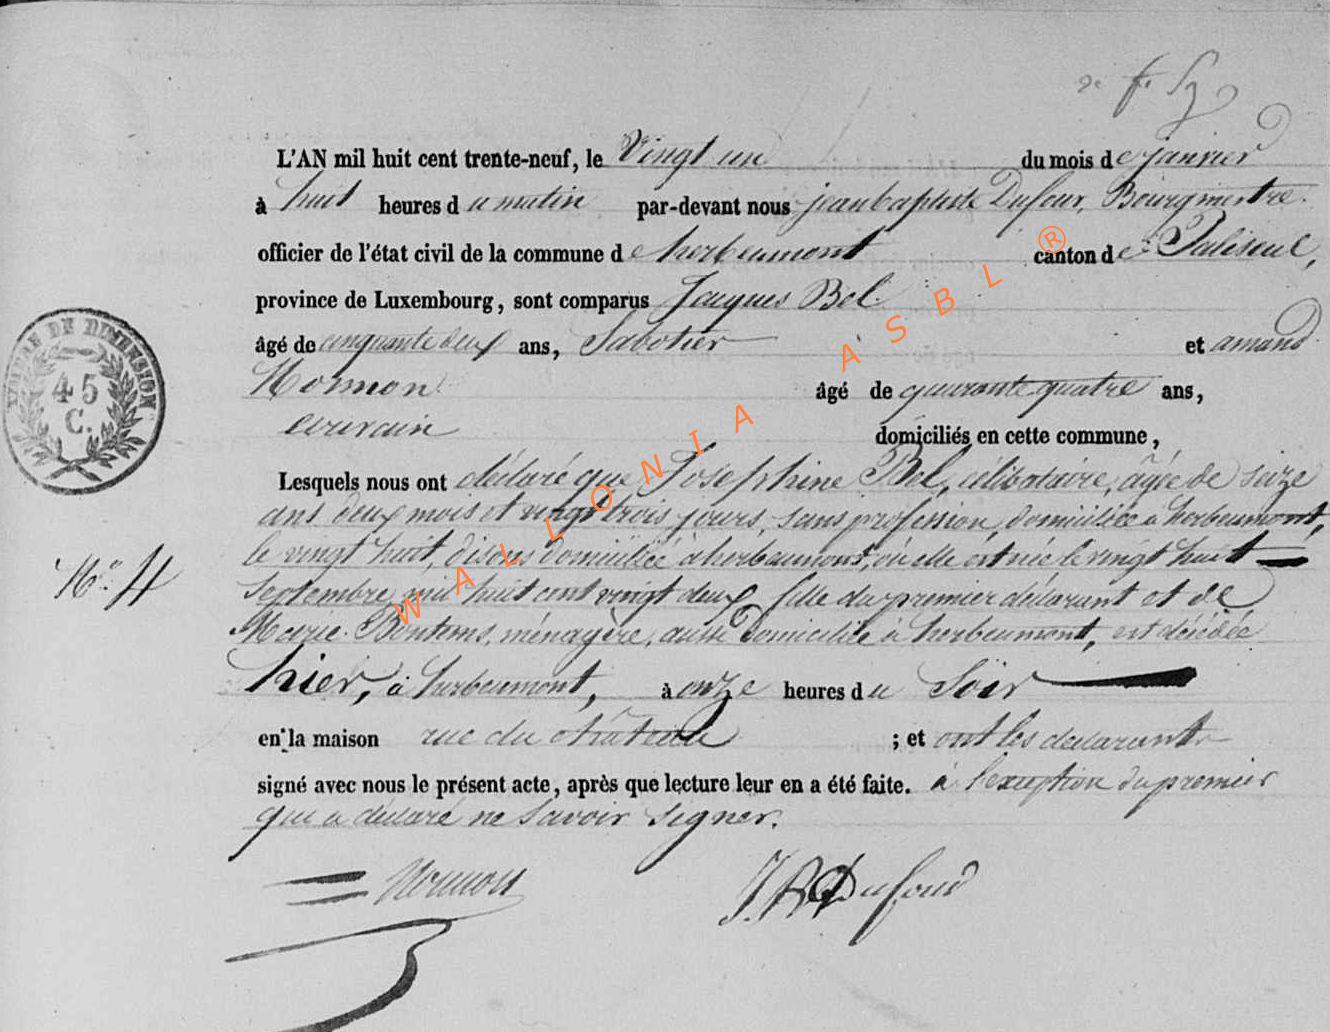 L'AN mil huit cent trente-neuf, le Vingt un du mois de janvier
à huit heures du matin par-devant nous jeanbaptiste Dufour, Bourgmestre.
officier de l'état civil de la commune de herbeumont canton de Paliseul,
province de Luxembourg, sont comparus Jacques Bel.
âgé de cinquante deux ans, Sabotier et amand
âgé de quarante quatre ans,
ecrivain
domiciliés en cette commune,
Lesquels nous ont déclaré que Josephine Bel, célibataire, âgée de seize
ans deux mois et vingt trois jours, sans profession, domiciliée à herbeumont,
le vingt huit, disons domiciliée à herbeumont, où elle est née le vingt huit
Septembre mil huit cent vingt deux, fille du premier déclarant et de
Marie Bontems, ménagère, aussi domiciliée à herbeumont, est décédée
hier, à herbeumont, à onze heures du Soir
en la maison rue du château ; et ont les déclarants
signé avec nous le présent acte, après que lecture leur en a été faite. à l'exception du premier
qui a déclaré ne savoir signer.
J.B. Dufour
N.° 4
TIMBRE DE DIMENSION
45
C.
WALLONIA ASBL ®